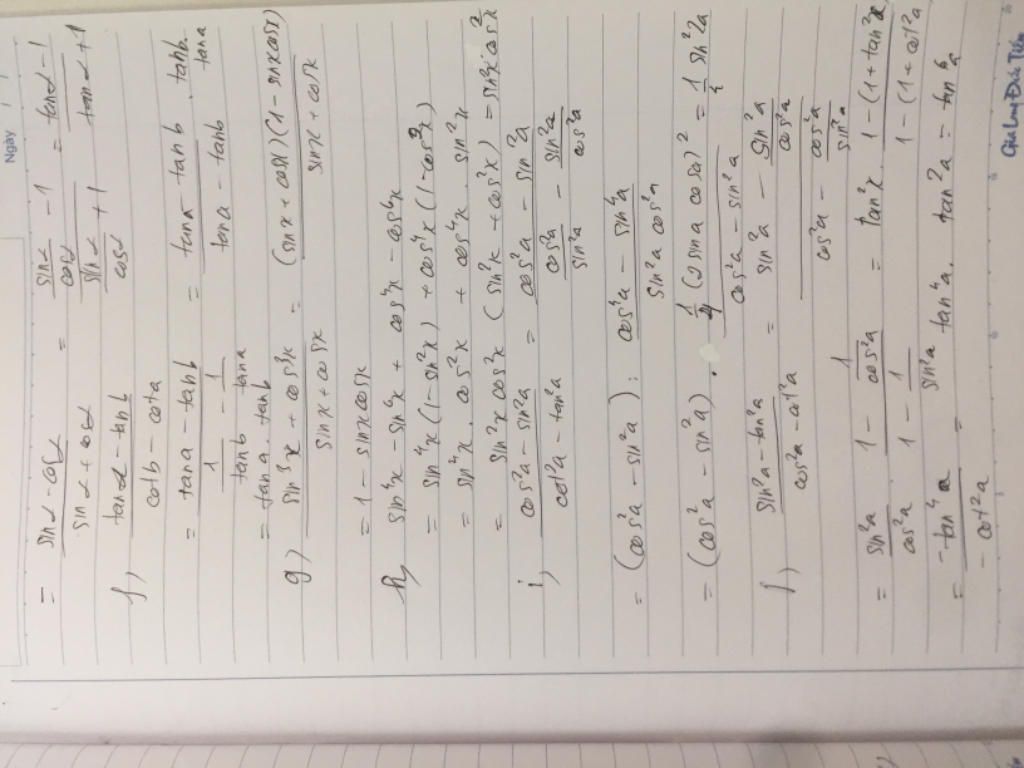 Ngày
= (sinα - cosα)/(sinα + cosα) = (sinα/cosα - 1)/(sinα/cosα + 1) = (tanα - 1)/(tanα + 1)
f, (tanα - tanb)/(cotb - cota)
= (tana - tanb)/(1/tanb - 1/tana) = (tana - tanb)/(tana - tanb) . tanb tana
= tana . tanb
g) (sin³x + cos³x)/(sinx + cosx) = (sinx + cosx)(1 - sinxcosx)/(sinx + cosx)
= 1 - sinxcosx
h, sin⁴x - sin⁶x + cos⁴x - cos⁶x
= sin⁴x(1 - sin²x) + cos⁴x(1 - cos²x)
= sin⁴x . cos²x + cos⁴x . sin²x
= sin²x cos²x (sin²x + cos²x) = sin²x cos²x
i, (cos²a - sin²a)/(cot²a - tan²a) = (cos²a - sin²a)/(cos²a/sin²a - sin²a/cos²a)
= (cos²a - sin²a) : (cos⁴a - sin⁴a)/(sin²a cos²a)
= (cos²a - sin²a) . 1/4 (2 sina cosa)²/(cos²a - sin²a) = 1/4 sin²2a
f, (sin²a - tan²a)/(cos²a - cot²a) = (sin²a - sin²a/cos²a)/(cos²a - cos²a/sin²a)
= sin²a/cos²a (1 - 1/cos²a)/(1 - 1/sin²a) = tan²x . (1 - (1 + tan²x))/(1 - (1 + cot²a))
= -tan⁴a/-cot²a = tan⁴a . tan²a = tan⁶a